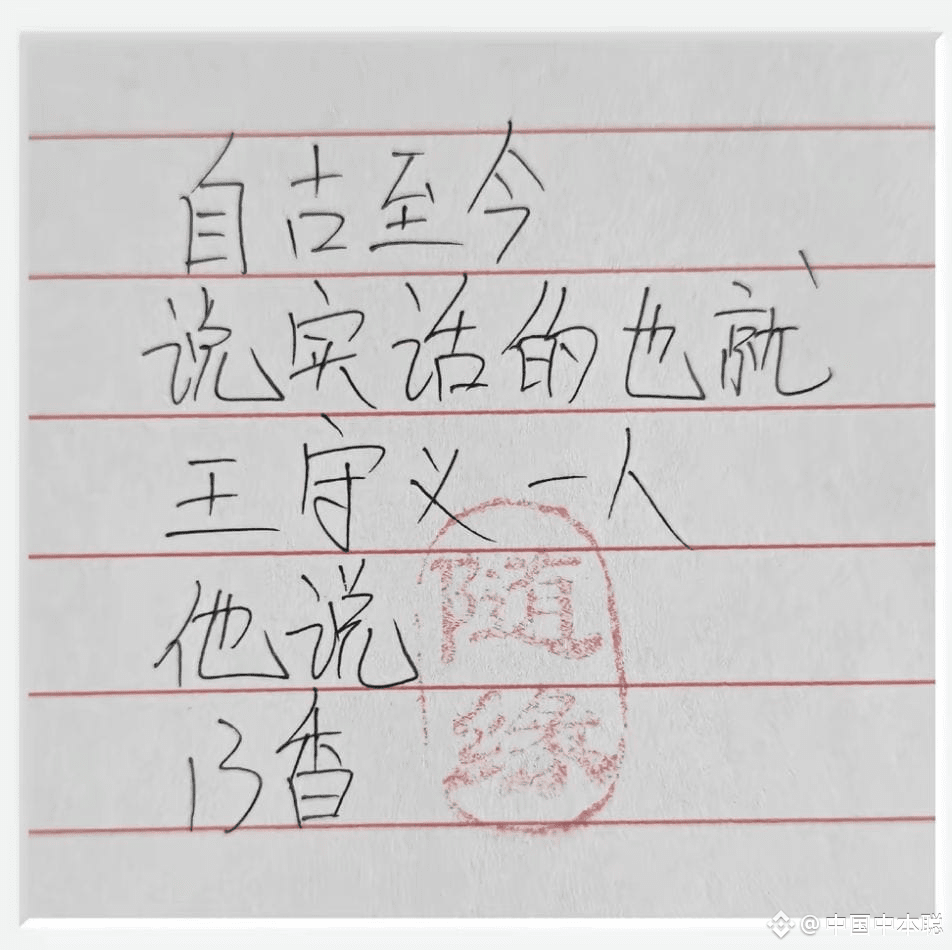 自古至今
说实话的也就
王守义一人
他说
13香
随
缘
@中国中本聪